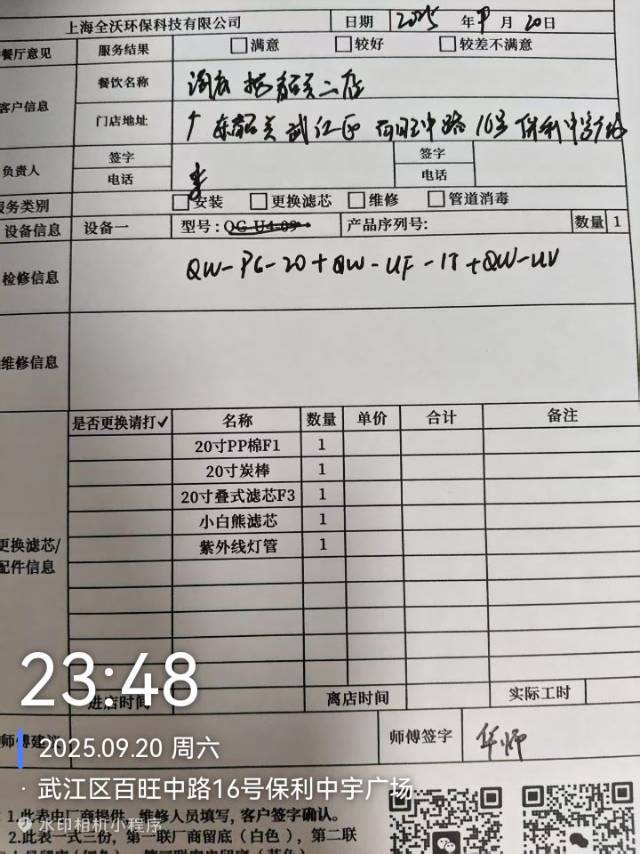 上海全沃环保科技有限公司 日期 2025 年 9 月 20 日
餐厅意见 服务结果 满意 较好 较差不满意
客户信息 餐饮名称
门店地址 广东韶关 武江区 百旺中路 16号 保利中宇广场
负责人 签字 签字
电话 电话
服务类别 安装 更换滤芯 维修 管道消毒
设备信息 设备一 型号: 产品序列号: 数量 1
检修信息 QW-PC-20+QW-UF-1T+QW-UV
维修信息
是否更换请打✓ 名称 数量 单价 合计 备注
20寸PP棉F1 1
20寸炭棒 1
20寸叠式滤芯F3 1
小白熊滤芯 1
紫外线灯管 1
更换滤芯/
配件信息
23:48
进店时间 离店时间 实际工时
师傅建议 师傅签字 华师
2025.09.20 周六
武江区百旺中路16号保利中宇广场
1.此表由厂商提供，维修人员填写, 客户签字确认。
水印相机小程序
2.此表一式三份，第一联厂商留底（白色），第二联